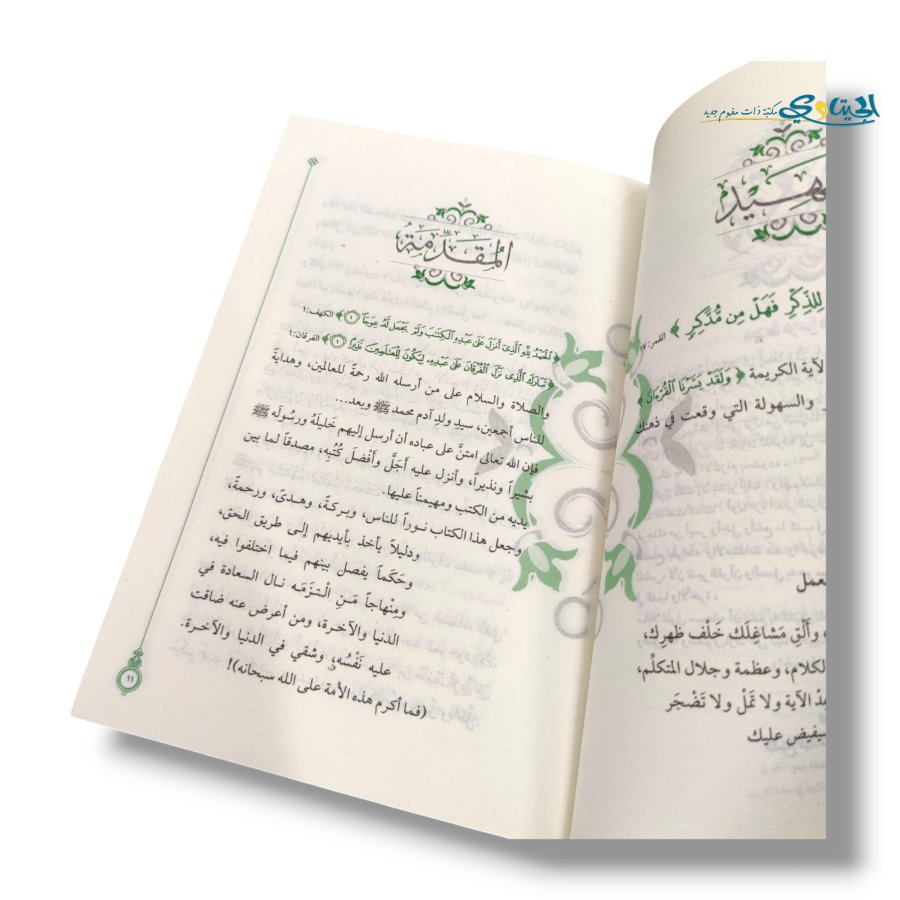 الحيتاوي
مكتبة ذات مفهوم جديد
هيد
للذِّكْرِ فَهَلْ مِن مُّدَّكِرٍ ﴾ القمر:١٧
لآية الكريمة ﴿ وَلَقَدْ يَسَّرْنَا الْقُرْءَانَ ﴾
والسهولة التي وقعت في ذهنك
لعمل
، وأَلْقِ مَشَاغِلَك خَلْف ظهرِك،
لكلام، وعظمة وجلال المتكلِّم،
الآية ولا تَمَلْ ولا تَضْجَر
سيفيض عليك
المُقَدِّمَةُ
﴿ الْحَمْدُ لِلَّهِ الَّذِي أَنزَلَ عَلَىٰ عَبْدِهِ الْكِتَابَ وَلَمْ يَجْعَل لَّهُ عِوَجًا ۝١ ﴾ الكهف:١
﴿ تَبَارَكَ الَّذِي نَزَّلَ الْفُرْقَانَ عَلَىٰ عَبْدِهِ لِيَكُونَ لِلْعَالَمِينَ نَذِيرًا ۝١ ﴾ الفرقان:١
والصلاة والسلام على من أرسله الله رحمةً للعالمين، وهدايةً
للناس أجمعين، سيدِ ولدِ آدم محمد ﷺ وبعد...
فإن الله تعالى امتنَّ على عباده أن أرسل إليهم خَليلَهُ ورسُولَه ﷺ
بشيراً ونذيراً، وأنزل عليه أَجَلَّ وأَفْضلَ كُتُبِه، مصدقاً لما بين
يديه من الكتب ومهيمناً عليها.
وجعل هذا الكتاب نوراً للناس، وبركةً، وهدىً، ورحمةً،
ودليلاً يأخذ بأيديهم إلى طريق الحق،
وحَكَماً يفصل بينهم فيما اختلفوا فيه،
ومِنْهاجاً مَنِ الْتَزَمَه نال السعادة في
الدنيا والآخرة، ومن أعرض عنه ضاقت
عليه نَفْسُه، وشقي في الدنيا والآخرة.
(فما أكرم هذه الأمة على الله سبحانه)!
١١